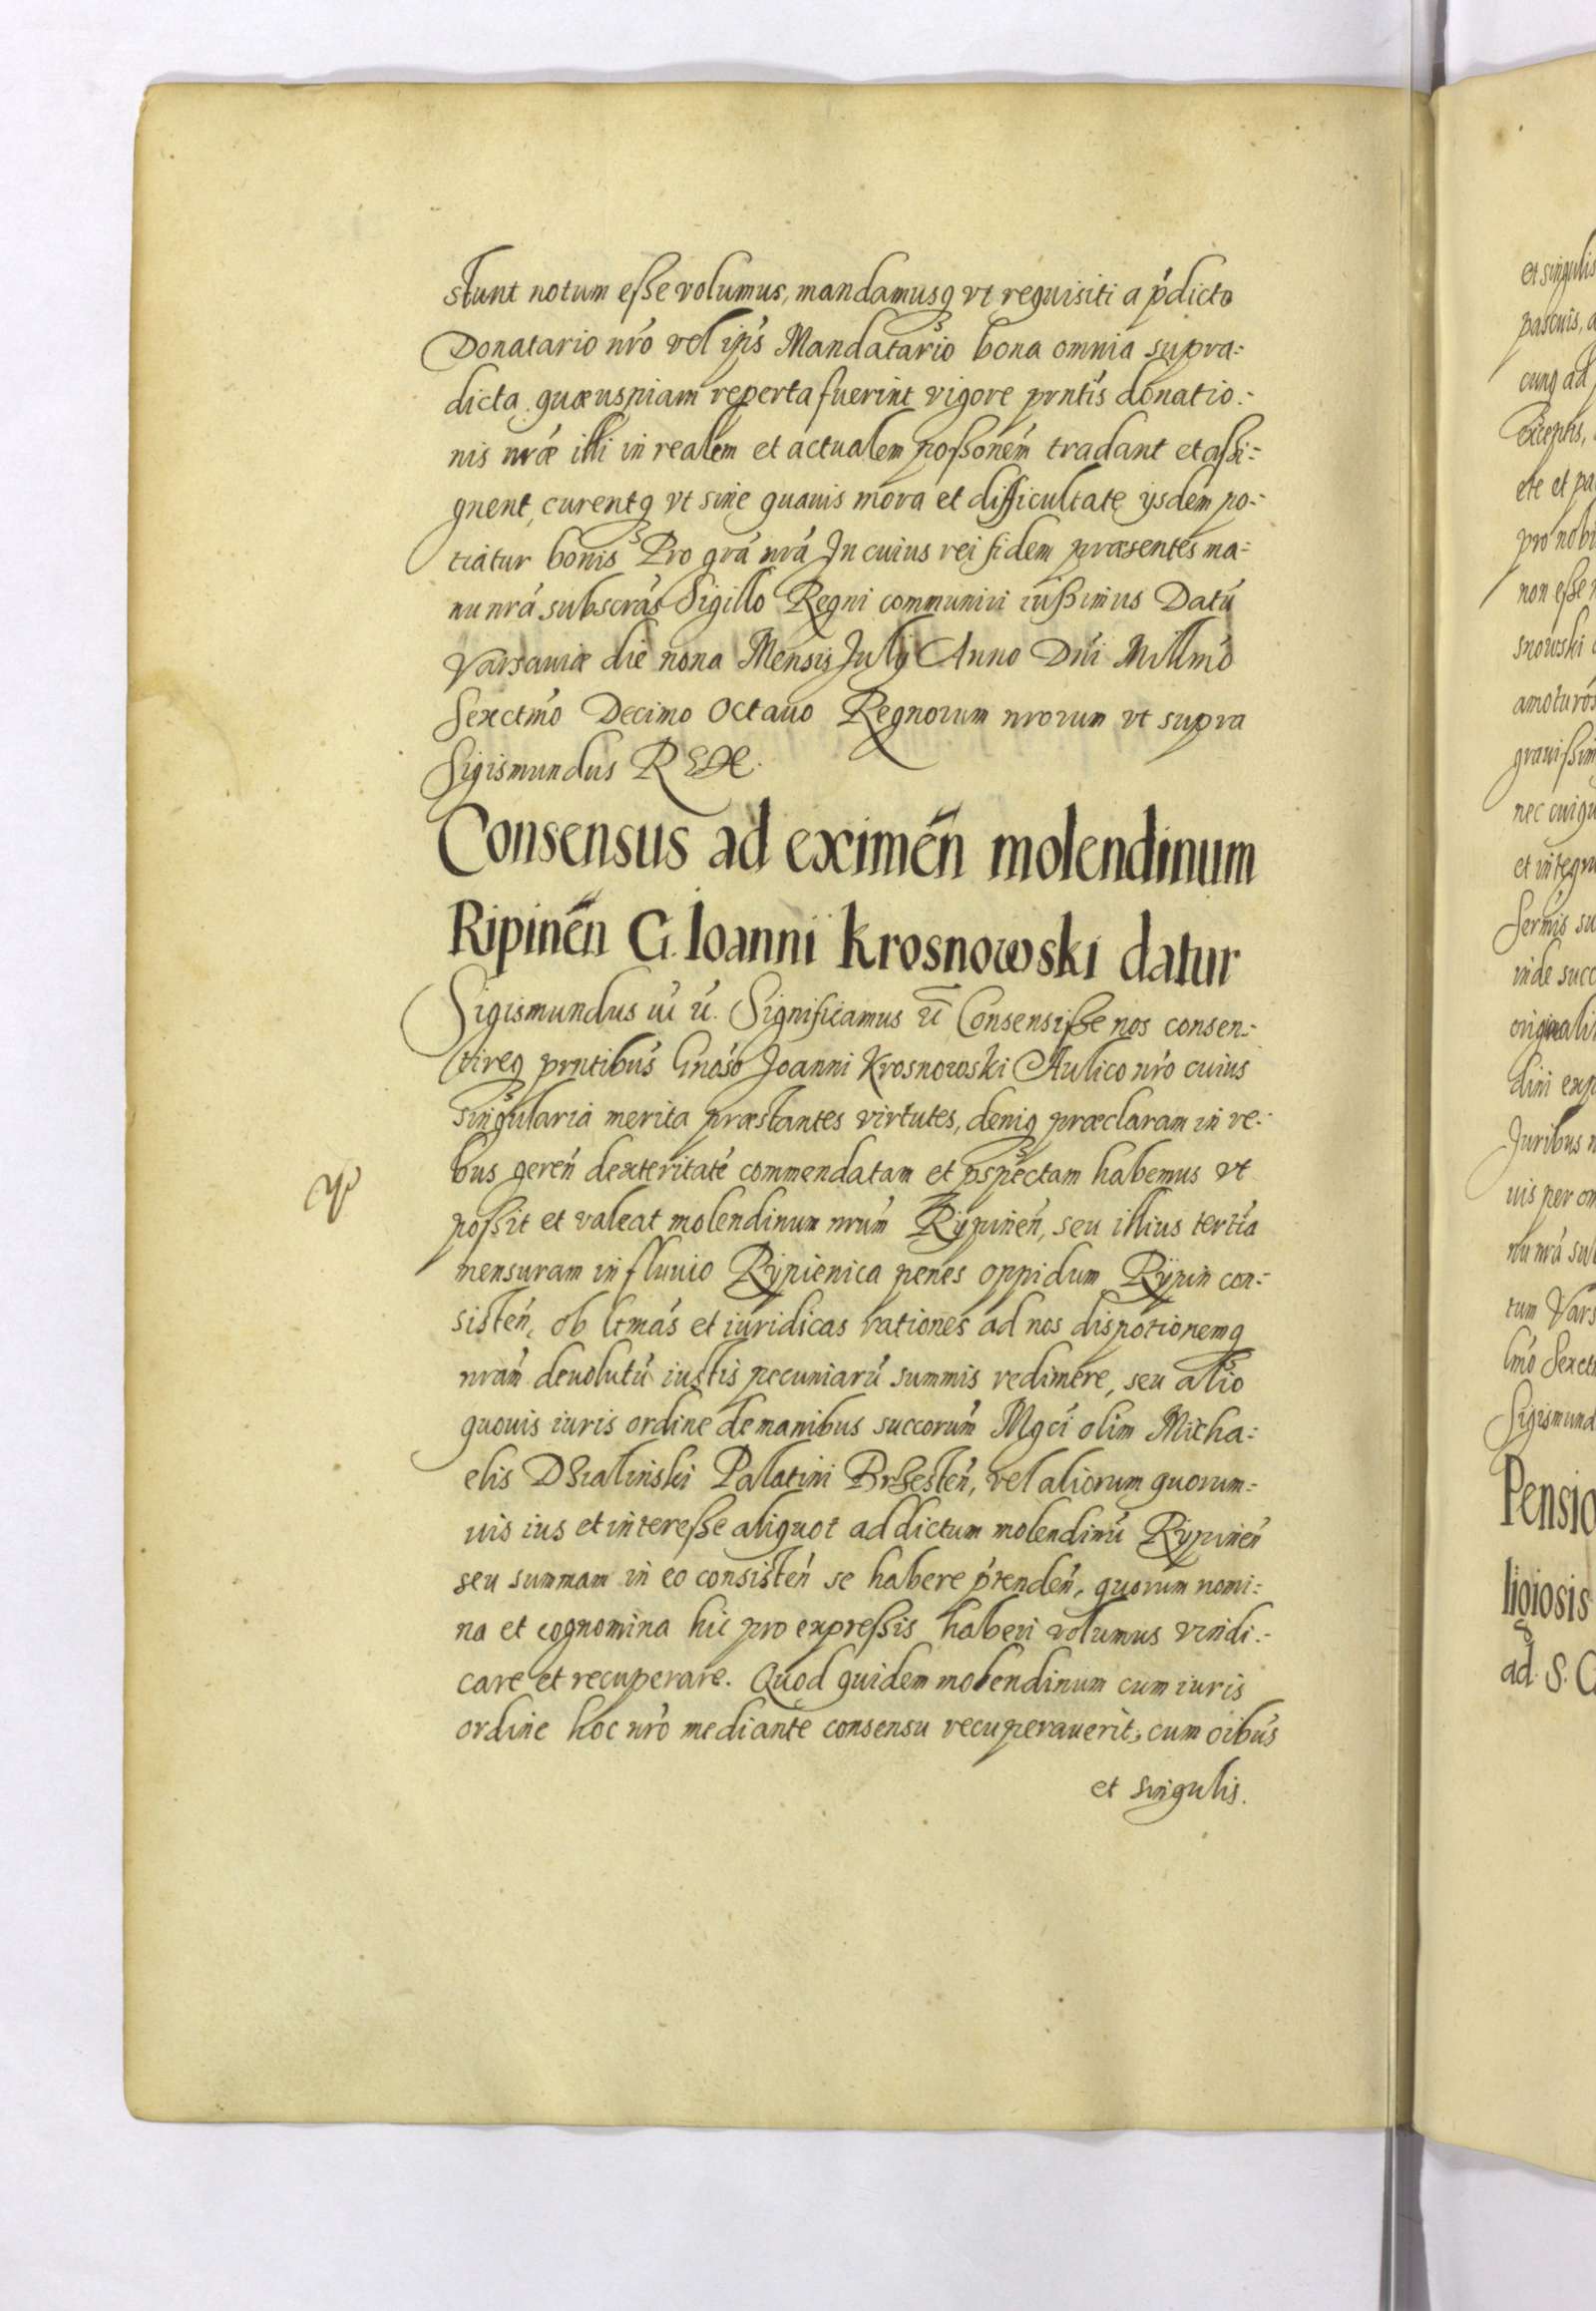 stunt notum eſse volumus, mandamusq₃ vt requisiti a ṕdicto
Donatario nr̃o vel ip̃s Mandatario bona omnia supra-
dicta quæ uspiam reperta fuerint vigore pr̃ntis donatio-
nis nr̃æ illi in realem et actualem poſsonem̃ tradant et aſsi-
gnent, curentq₃ vt sine quauis mora et difficultate ijsdem po-
tiatur bonis Pro gr̃a nr̃a In cuius rei fidem præsentes ma-
nu nr̃a subscr̃as Sigillo Regni communiri iuſsimus Datũ
Varsauiæ die nona Mensis Julij Anno Dñi Millmõ
Sexctmõ Decimo Octauo Regnorum nrorum vt supra
Sigismundus REX.
Consensus ad eximeñ molendinum
Ripineñ G. Ioanni Krosnowski datur
Sigismundus iii ũ. Significamus ũ Consensiſse nos consen-
tireq₃ pr̃ntibus Gnõso Joanni Krosnowski Aulico nr̃o cuius
singularia merita præstantes virtutes, deniq₃ præclaram in re-
bus gereñ dexteritatẽ commendatam et pspectam habemus vt
poſsit et valeat molendinum nrũm Rÿpineñ, seu illius tertiã
mensuram in fluuio Rÿpienica penes oppidum Rÿpin con-
sisteñ, ob ltmãs et iuridicas rationes ad nos dispotionemq₃
nrãm deuolutũ iustis pecuniarũ summis redimere, seu alio
quouis iuris ordine de manibus succorum̃ Mgci olim Micha-
elis Dzialinski Palatini Brzesteñ, vel aliorum quorum-
uis ius et intereſse aliquot ad dictum molendinũ Rÿpineñ
seu summam in eo consisteñ se habere p̃tendeñ, quorum nomi-
na et cognomina hic pro expreſsis haberi volumus vindi-
care et recuperare. Quod quidem molendinum cum iuris
ordine hoc nr̃o mediante consensu recuperauerit, cum oibũs
et singulis.